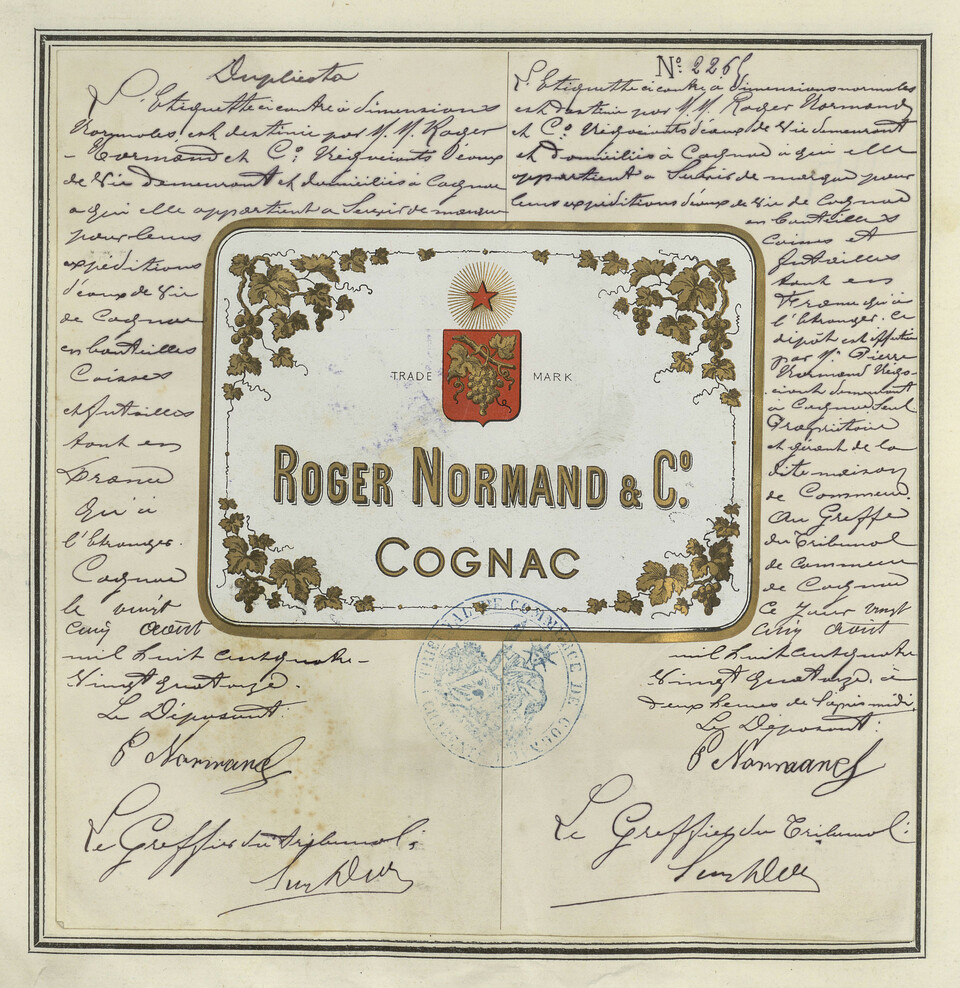 Duplicata
L'Etiquette ci contre à dimensions
Normales est destinée par M. M. Roger
Normand et Co. Négociants d'eaux
de Vie demeurant et domiciliés à Cognac
a qui elle appartient a Servir de marque
pour leurs
expéditions
d'eaux de Vie
de Cognac
en bouteilles
Caisses
et futailles
tant en
France
qu'à
l'étranger.
Cognac
le vingt
cinq Août
mil huit cent quatre-
Vingt quatorze.
Le Déposant:
P Normand
Le Greffier du tribunal:
No. 2265
L'Etiquette ci contre à dimensions normales
est destinée par M. M. Roger Normand
et Co. Négociants d'eaux de Vie demeurant
et Domiciliés à Cognac à qui elle
appartient a Servir de marque pour
leurs expéditions d'eaux de Vie de Cognac
en bouteilles
Caisses et
futailles
tant en
France qu'à
l'étranger. Ce
dépôt est effectué
par Mr. Pierre
Normand Négo-
ciant demeurant
à Cognac Seul
Propriétaire
et gérant de la
dite maison
de Commerce.
Au Greffe
du Tribunal
de Commerce
de Cognac
Ce Jour vingt
cinq Août
mil huit cent quatre
Vingt Quatorze, à
deux heures de l'après midi.
Le Déposant:
P Normand
Le Greffier du Tribunal:
TRADE MARK
ROGER NORMAND & Co.
COGNAC
TRIBUNAL DE COMMERCE DE COGNAC